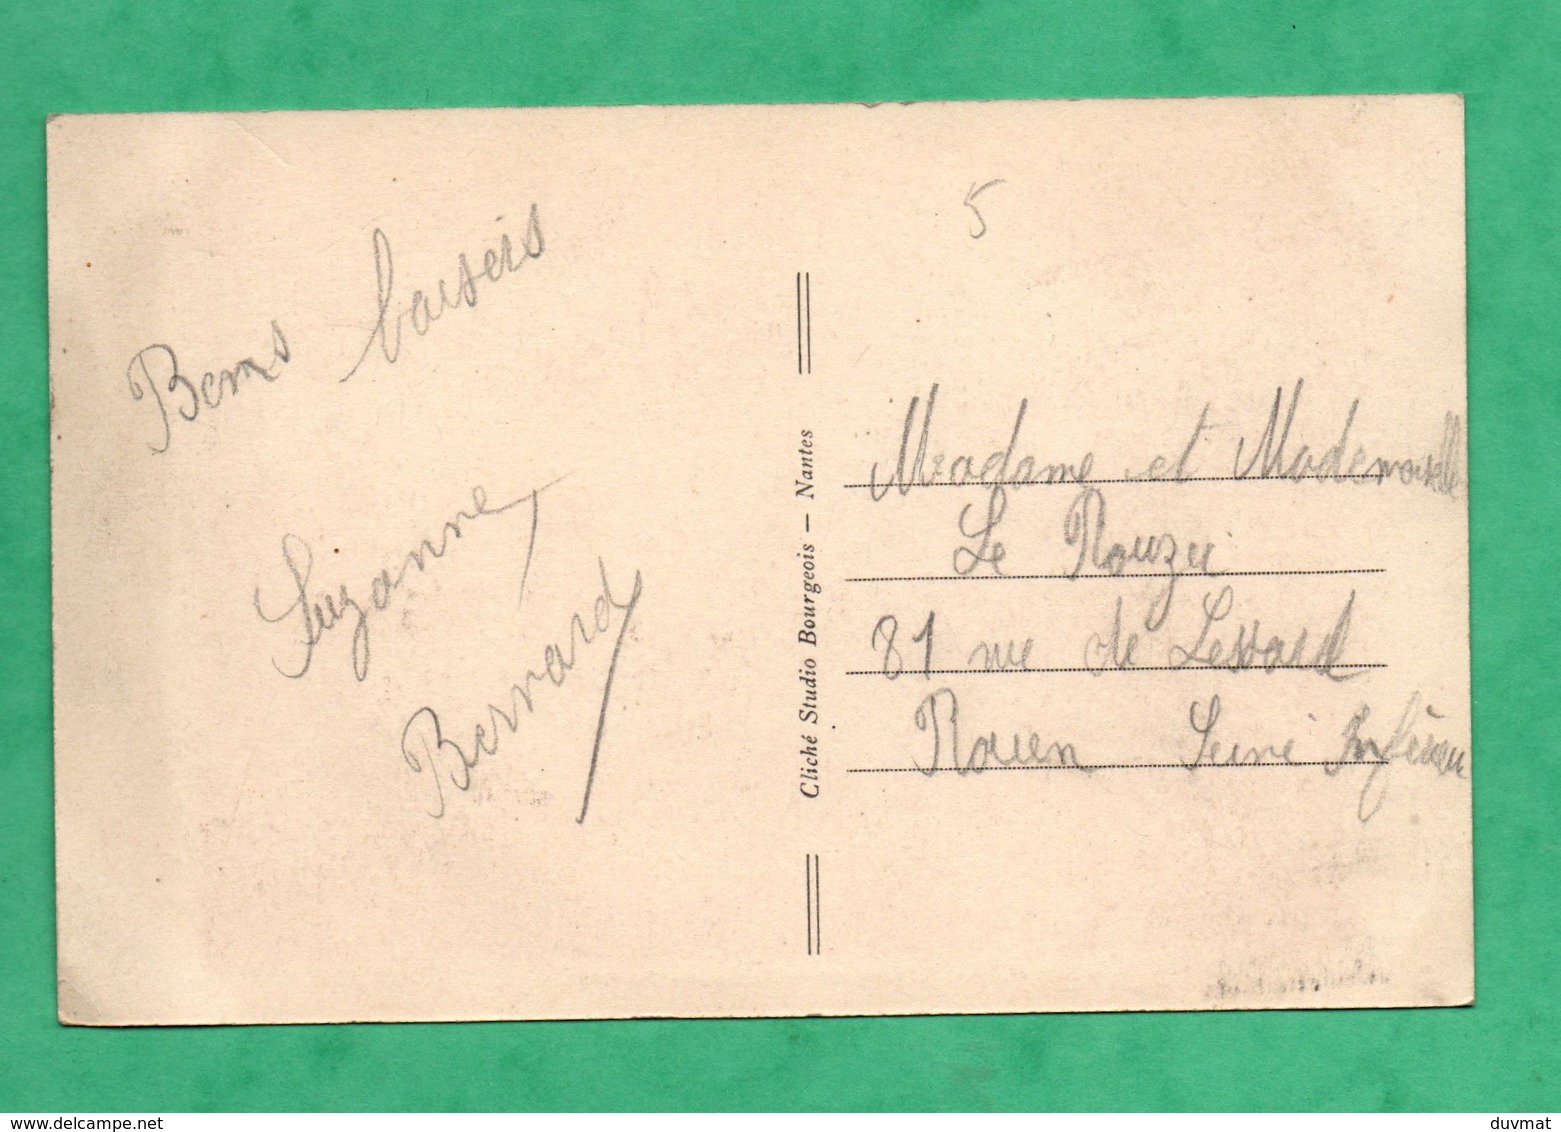 Bons baisers
Suzanne
Bernard
Cliché Studio Bourgeois — Nantes
5
Madame et Mademoiselle
Le Rouzic
81 rue de Lessard
Rouen Seine Inférieu
www.delcampe.net
duvmat